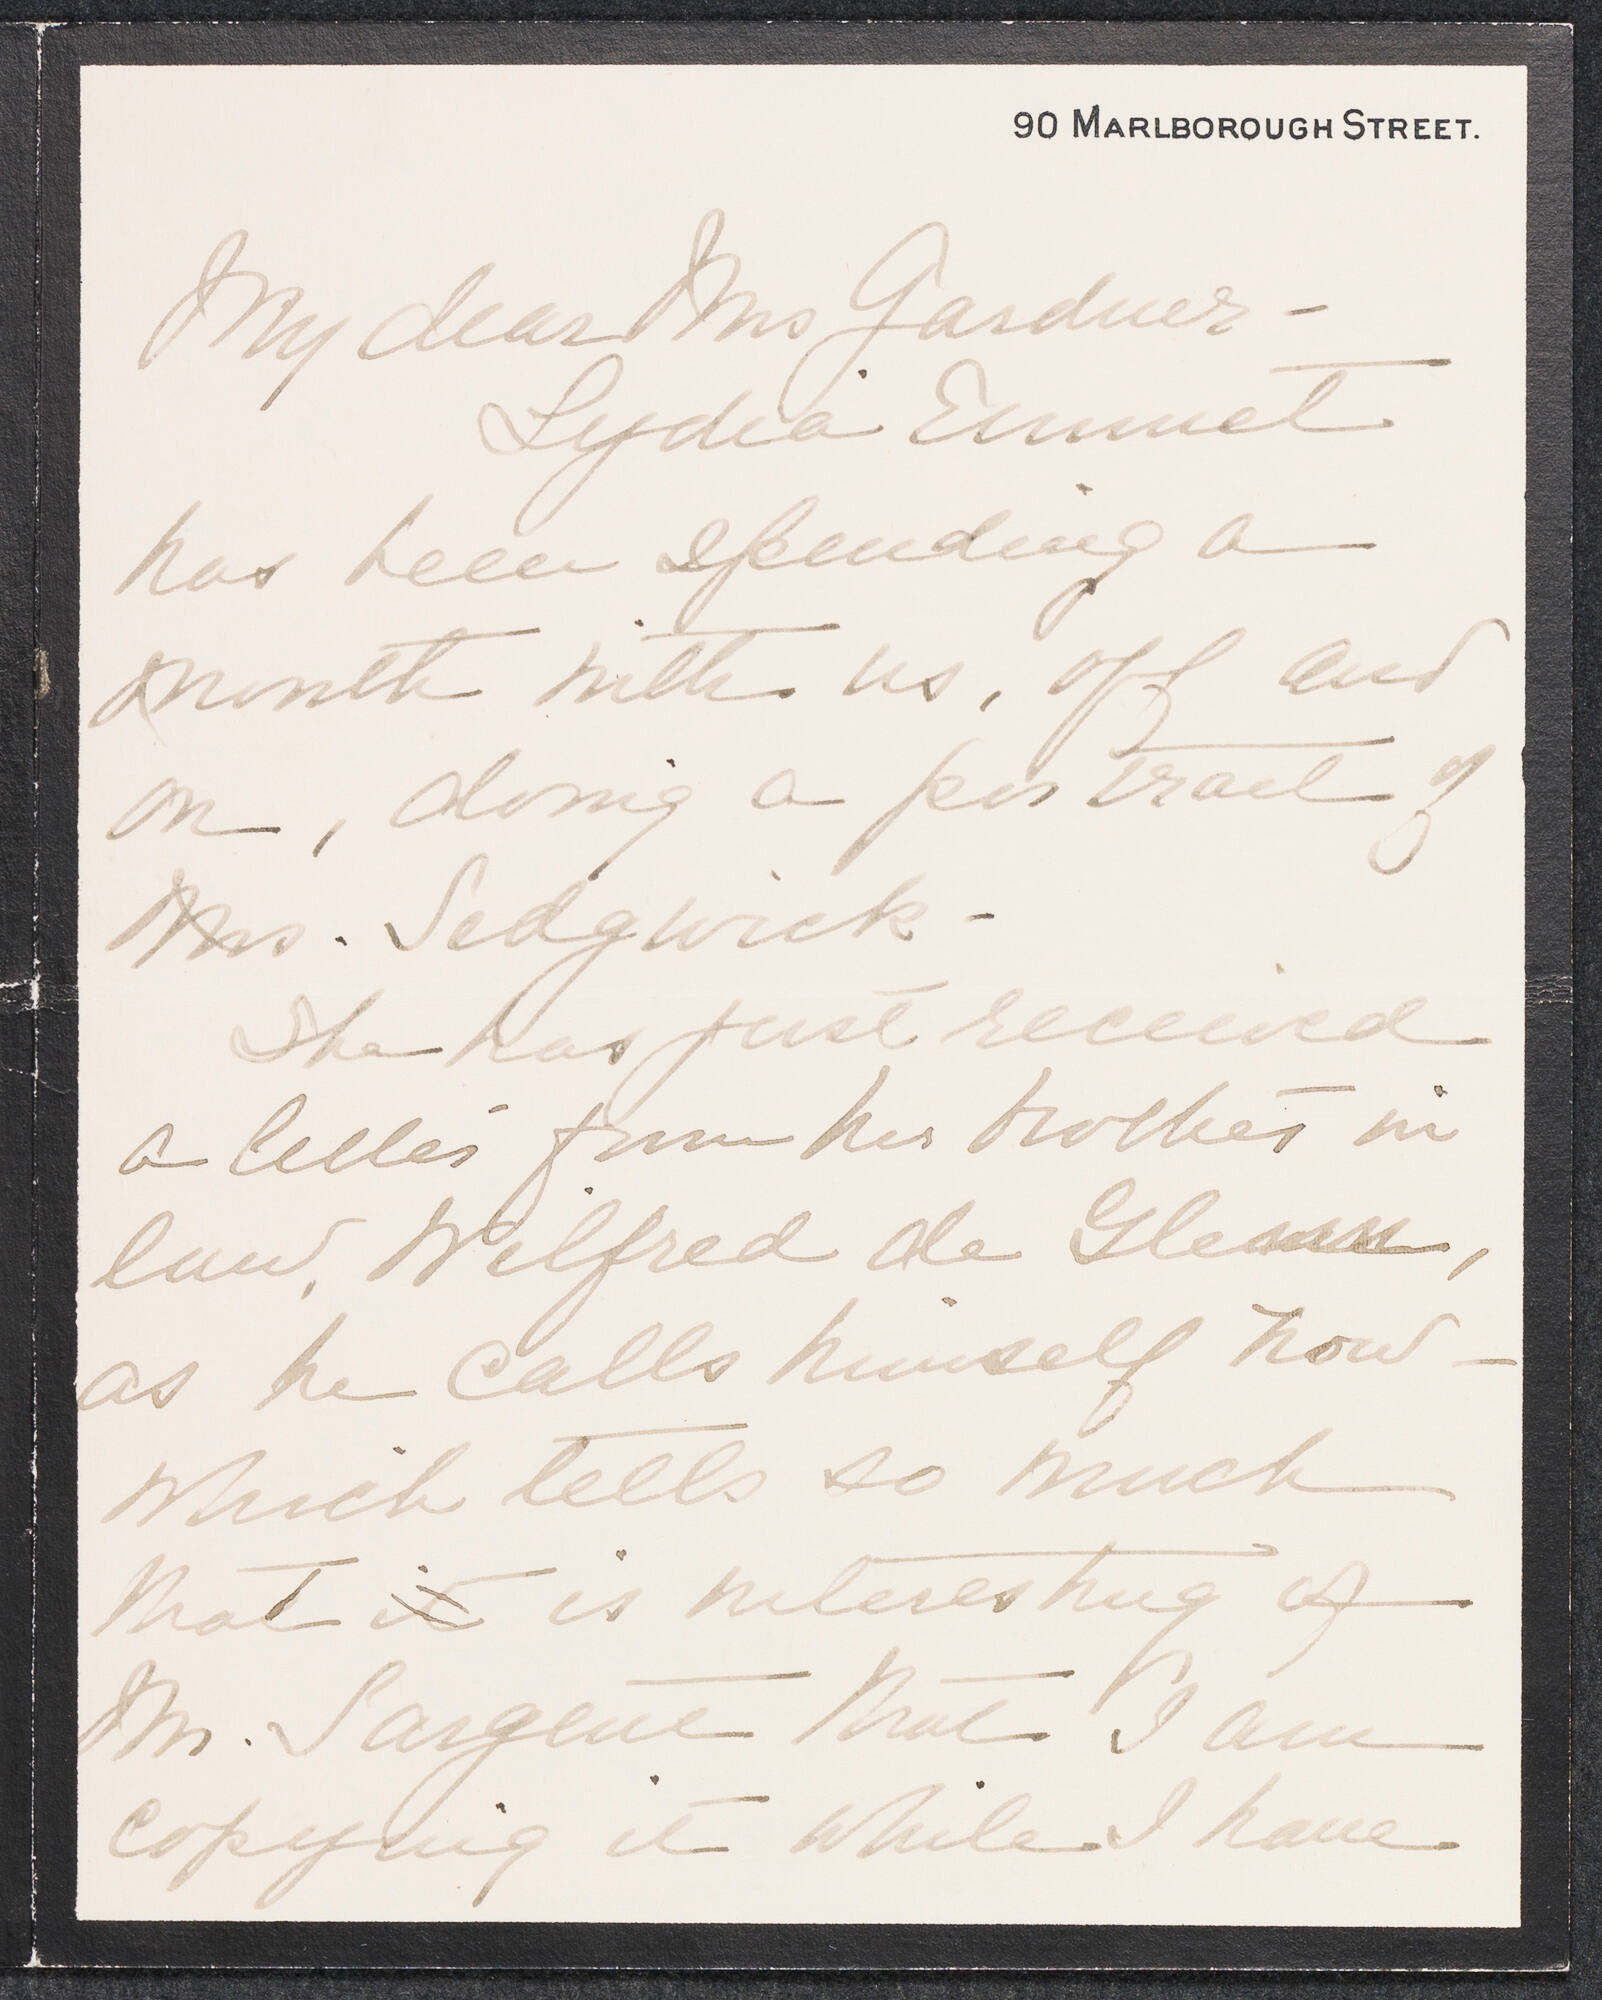 90 MARLBOROUGH STREET.
My dear Mrs Gardner -
Lydia Emmet
has been spending a
month with us, off and
on, doing a portrait of
Mrs. Sedgwick -
She has just received
a letter from her brother in
law, Wilfred de Glenn,
as he calls himself now -
which tells so much
that it is interesting of
Mr. Sargent that I am
copying it while I have